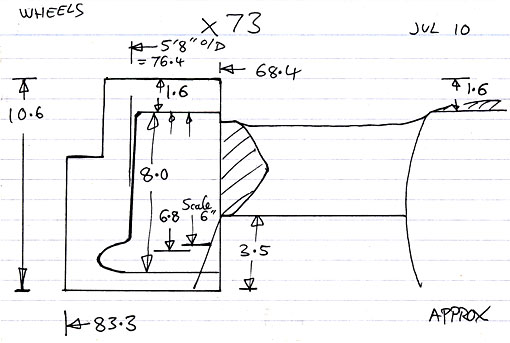 WHEELS
X 73
JUL 10
5'8" O/D
= 76.4
68.4
1.6
1.6
10.6
8.0
6.8
Scale
6"
3.5
83.3
APPROX